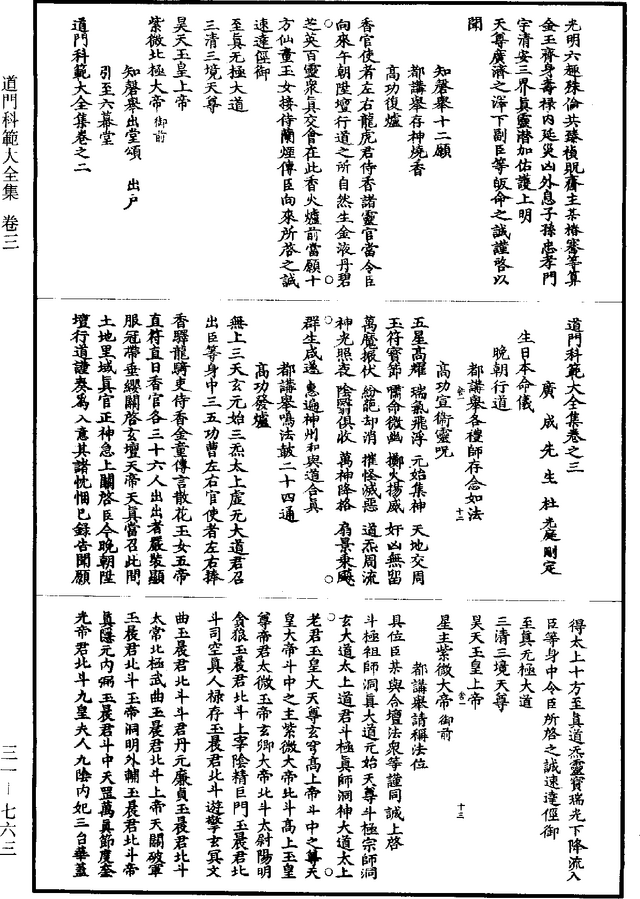 光明六趣殊倫共臻禎貺齋主某椿齡等算
金玉齊身壽祿內延災凶外息子孫忠孝門
宇清安三界真靈潛加佑護上明
天尊廣濟之澤下副臣等皈命之誠謹啓以
聞
知磬舉十二願
都講舉存神燒香
高功復爐
香官使者左右龍虎君侍香諸靈官當令臣
向來午朝陞壇行道之所自然生金液丹碧
芝英百靈衆真交會在此香火爐前當願十
方仙童玉女接侍蘭煙傳臣向來所啓之誠
速達徑御
至真无極大道
三清三境天尊
昊天玉皇上帝
紫微北極大帝御前
知磬舉出堂頌 出戶
引至六幕堂
道門科範大全集卷之二
道門科範大全集卷之三
廣成先生杜光庭刪定
生日本命儀
晚朝行道
都講舉各禮師存念如法
高功宣衛靈呪
五星高耀 瑞氣飛浮 元始集神 天地交周
玉符寶節 嘯命微幽 擲火揚威 奸凶無留
萬魔振伏 紛葩却消 摧怪滅惡 道炁周流
神光照表 陰翳俱收 萬神降格 扇景乘飈
群生咸遂 惠遍神州 和與道合真
都講舉鳴法鼓二十四通
高功發爐
無上三天玄元始三炁太上虛无大道君召
出臣等身中三五功曹左右官使者左右捧
香驛龍騎吏侍香金童傳言散花玉女五帝
直符直日香官各三十六人出出者嚴裝顯
服冠帶垂纓關啓玄壇天帝天真當召此間
土地里域真官正神急上關啓臣今晚朝陞
壇行道謹奏為入意其諸忱悃已錄告聞願
得太上十方至真道炁靈寶瑞光下降流入
臣等身中令臣所啓之誠速達徑御
至真无極大道
三清三境天尊
昊天玉皇上帝
星主紫微大帝御前
都講舉請稱法位
具位臣某與合壇法衆等謹同誠上啓
斗極祖師洞真大道元始天尊斗極宗師洞
玄大道太上道君斗極真師洞神大道太上
老君玉皇大天尊玄穹高上帝斗中之尊天
皇大帝斗中之主紫微大帝北斗高上玉皇
尊帝君太微玉帝玄卿大帝北斗太尉陽明
貪狼玉晨君北斗上宰陰精巨門玉晨君北
斗司空真人祿存玉晨君北斗遊擊玄冥文
曲玉晨君北斗斗君丹元廉貞玉晨君北斗
太常北極武曲玉晨君北斗上帝天關破軍
玉晨君北斗玉帝洞明外輔玉晨君北斗帝
真隱元內弼玉晨君斗中天罡萬真節度奎
光帝君北斗九皇夫人九陰內妃三台華蓋
道門科範大全集 卷三
三一—七六三